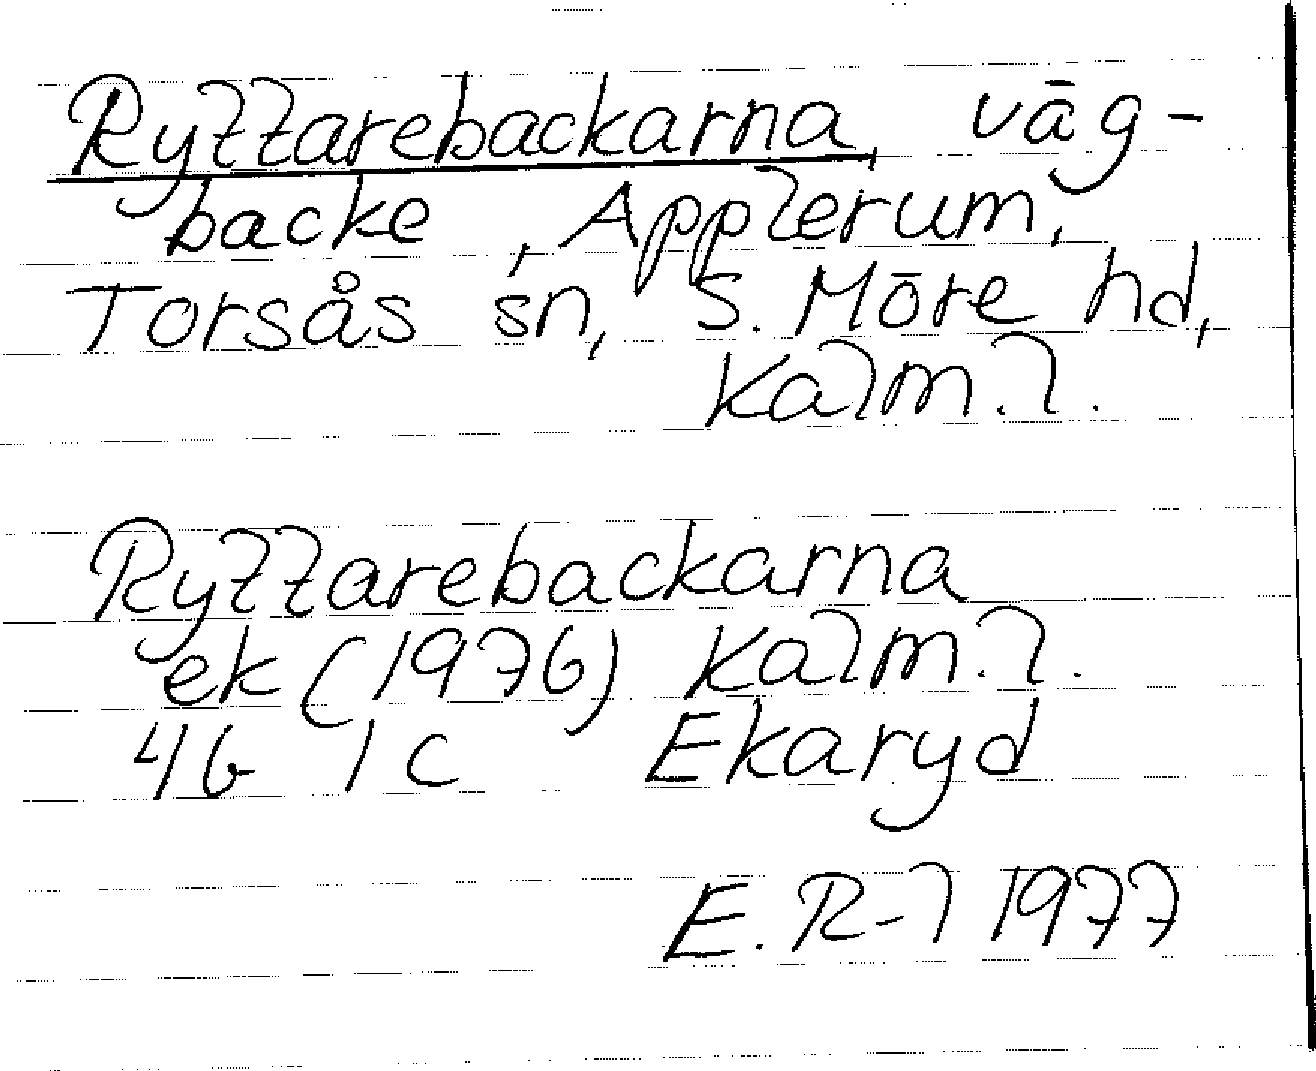 Ryttarebackarna, väg-
backe, Applerum,
Torsås sn, S. Möre hd,
Kalm. l.
Ryttarebackarna
ek (1976) Kalm. l.
4G 1c Ekaryd
E. R-l 1977